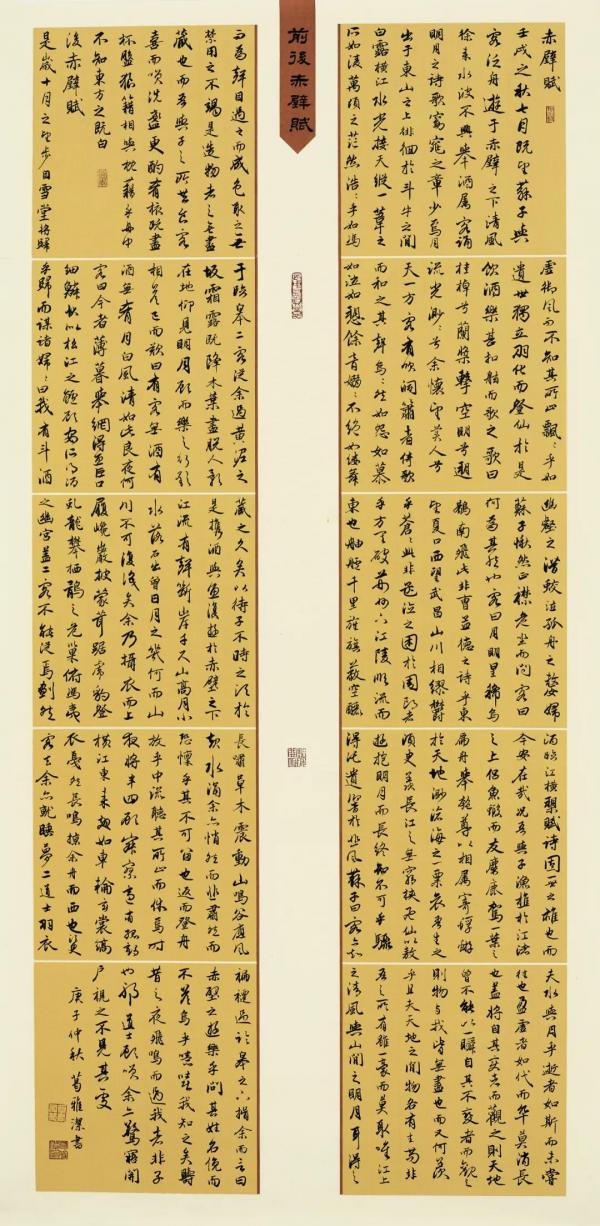 前後赤壁賦
赤壁賦
壬戌之秋七月既望蘇子與
客泛舟遊于赤壁之下清風
徐來水波不興舉酒属客誦
明月之詩歌窈窕之章少焉月
出于東山之上徘徊於斗牛之間
白露橫江水光接天縱一葦之
所如凌萬頃之茫然浩〻乎如馮
虛御風而不知其所止飄〻乎如
遺世獨立羽化而登仙於是
飲酒樂甚扣舷而歌之歌曰
桂棹兮蘭槳擊空明兮遡
流光渺〻兮余懷望美人兮
天一方客有吹洞簫者倚歌
而和之其聲烏〻然如怨如慕
如泣如懇餘音嫋〻不絕如縷舞
幽壑之潛蛟泣孤舟之嫠婦
蘇子愀然正襟危坐而問客曰
何為其然也客曰月明星稀烏
鵲南飛此非曹孟德之詩乎東
望夏口西望武昌山川相繆鬱
乎蒼〻此非孟德之困於周郎者
乎方其破荊州下江陵順流而
東也舳艫千里旌旗蔽空釃
酒臨江橫槊賦詩固一世之雄也而
今安在哉況吾與子漁樵於江渚
之上侶魚蝦而友麋鹿駕一葉之
扁舟舉匏尊以相属寄蜉蝣
於天地渺滄海之一粟哀吾生之
須臾羨長江之無窮挾飛仙以敖
遊抱明月而長終知不可乎驟
得託遺響於悲風蘇子曰客亦知
夫水與月乎逝者如斯而未嘗
往也盈虛者如代而卒莫消長
也蓋將自其變者而觀之則天地
曾不能以一瞬自其不變者而觀之
則物與我皆無盡也而又何羨
乎且夫天地之間物各有主苟非
吾之所有雖一毫而莫取唯江上
之清風與山間之明月耳得之
而為聲目遇之而成色取之無
禁用之不竭是造物者之無盡
藏也而吾與子之所共食客
喜而笑洗盞更酌肴核既盡
杯盤狼籍相與枕藉乎舟中
不知東方之既白
後赤壁賦
是歲十月之望步自雪堂將歸
于臨皋二客從余過黃泥之
坂霜露既降木葉盡脫人影
在地仰見明月顧而樂之行歌
相答已而歎曰有客無酒有
酒無肴月白風清如此良夜何
客曰今者薄暮舉網得魚巨口
細鱗狀似松江之鱸顧安所得酒
乎歸而謀諸婦〻曰我有斗酒
藏之久矣以待子不時之須於
是攜酒與魚復遊於赤壁之下
江流有聲斷岸千尺山高月小
水落石出曾日月之幾何而山
川不可復識矣余乃攝衣而上
履巉巖披蒙茸踞虎豹登
虬龍攀栖鶻之危巢俯馮夷
之幽宮蓋二客不能從焉劃然
長嘯草木震動山鳴谷應風
起水涌余亦悄然而悲肅然而
恐懍乎其不可留也返而登舟
放乎中流聽其所止而休焉時
夜將半四顧寂寥適有孤鶴
橫江東來翅如車輪玄裳縞
衣戛然長鳴掠余舟而西也須臾
客去余亦就睡夢二道士羽衣
蹁躚過臨皋之下揖余而言曰
赤壁之遊樂乎問其姓名俛而
不答嗚乎噫嘻我知之矣疇
昔之夜飛鳴而過我者非子
也邪道士顧笑余亦驚寤開
戶視之不見其處
庚子仲秋 葛雅潔書